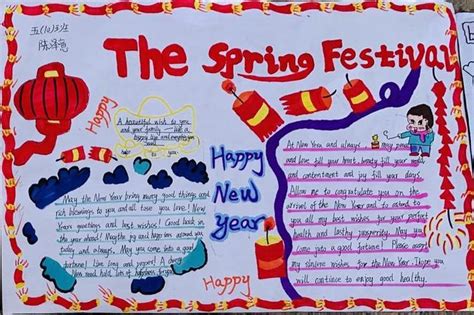 五(10)班
The Spring Festival
Happy
A beautiful wish to you
and your family
happy life and everything you
to you.
Happy
New
Year
May the New Year bring many good things and
rich blessings to you and all those you love! New
Year's greetings and best wishes! Good luck in
the year ahead! May the joy and happiness around you
today and always. May you come into a good
fortune! Live long and proper! A cheery
New
hold lots of happiness for you
At New Year and always may peace
and love fill your heart, beauty fill your world
and contentment and joy fill your days.
Allow me to congratulate you on the
arrival of the New Year and to extend to
you all my best wishes for your perfect
health and lasting prosperity. May you
come into a good fortune! Please accept
my sincere wishes for the New Year. I hope you
will continue to enjoy good healthy.
Happy